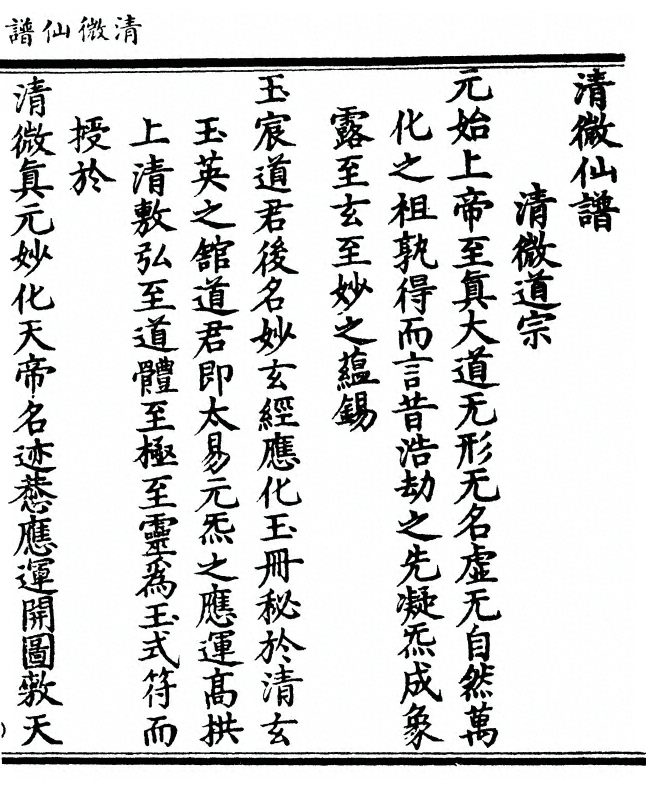 清微仙譜
清微仙譜
清微道宗
元始上帝至眞大道无形无名虛无自然萬
化之祖孰得而言昔浩劫之先凝炁成象
露至玄至妙之蘊錫
玉宸道君後名妙玄經應化玉冊秘於清玄
玉英之舘道君即太易元炁之應運高拱
上清敷弘至道體至極至靈爲玉式符而
授於
清微眞元妙化天帝名迹應運開圖敷天